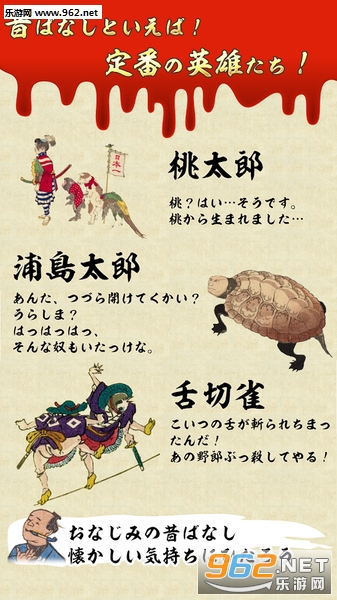 乐游网 www.962.net
昔ばなしといえば！
定番の英雄たち！
日本一
桃太郎
桃？はい…そうです。
桃から生まれました…
浦島太郎
あんた、つづら開けてくかい？
うらしま？
はっはっはっ、
そんな奴もいたっけな。
舌切雀
こいつの舌が斬られちまっ
たんだ！
あの野郎ぶっ殺してやる！
おなじみの昔ばなし
懐かしい気持ちに
962.NET
乐游网